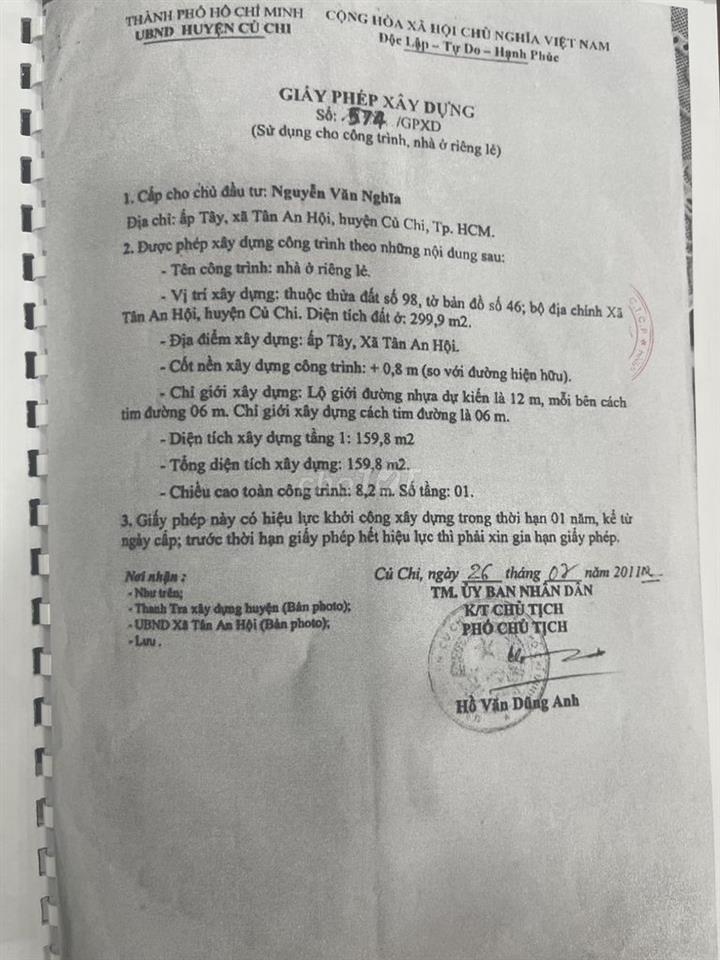 THÀNH PHỐ HỒ CHÍ MINH
UBND HUYỆN CỦ CHI
CỘNG HÒA XÃ HỘI CHỦ NGHĨA VIỆT NAM
Độc Lập – Tự Do – Hạnh Phúc
GIẤY PHÉP XÂY DỰNG
Số: 574 /GPXD
(Sử dụng cho công trình, nhà ở riêng lẻ)
1. Cấp cho chủ đầu tư: Nguyễn Văn Nghĩa
Địa chỉ: ấp Tây, xã Tân An Hội, huyện Củ Chi, Tp. HCM.
2. Được phép xây dựng công trình theo những nội dung sau:
- Tên công trình: nhà ở riêng lẻ.
- Vị trí xây dựng: thuộc thửa đất số 98, tờ bản đồ số 46; bộ địa chính Xã
Tân An Hội, huyện Củ Chi. Diện tích đất ở: 299,9 m2.
- Địa điểm xây dựng: ấp Tây, Xã Tân An Hội.
- Cốt nền xây dựng công trình: + 0,8 m (so với đường hiện hữu).
- Chỉ giới xây dựng: Lộ giới đường nhựa dự kiến là 12 m, mỗi bên cách
tim đường 06 m. Chỉ giới xây dựng cách tim đường là 06 m.
- Diện tích xây dựng tầng 1: 159,8 m2
- Tổng diện tích xây dựng: 159,8 m2.
- Chiều cao toàn công trình: 8,2 m. Số tầng: 01.
3. Giấy phép này có hiệu lực khởi công xây dựng trong thời hạn 01 năm, kể từ
ngày cấp; trước thời hạn giấy phép hết hiệu lực thì phải xin gia hạn giấy phép.
Nơi nhận :
- Như trên;
- Thanh Tra xây dựng huyện (Bản photo);
- UBND Xã Tân An Hội (Bản photo);
- Lưu .
Củ Chi, ngày 26 tháng 02 năm 2011
TM. ỦY BAN NHÂN DÂN
K/T CHỦ TỊCH
PHÓ CHỦ TỊCH
Hồ Văn Dũng Anh